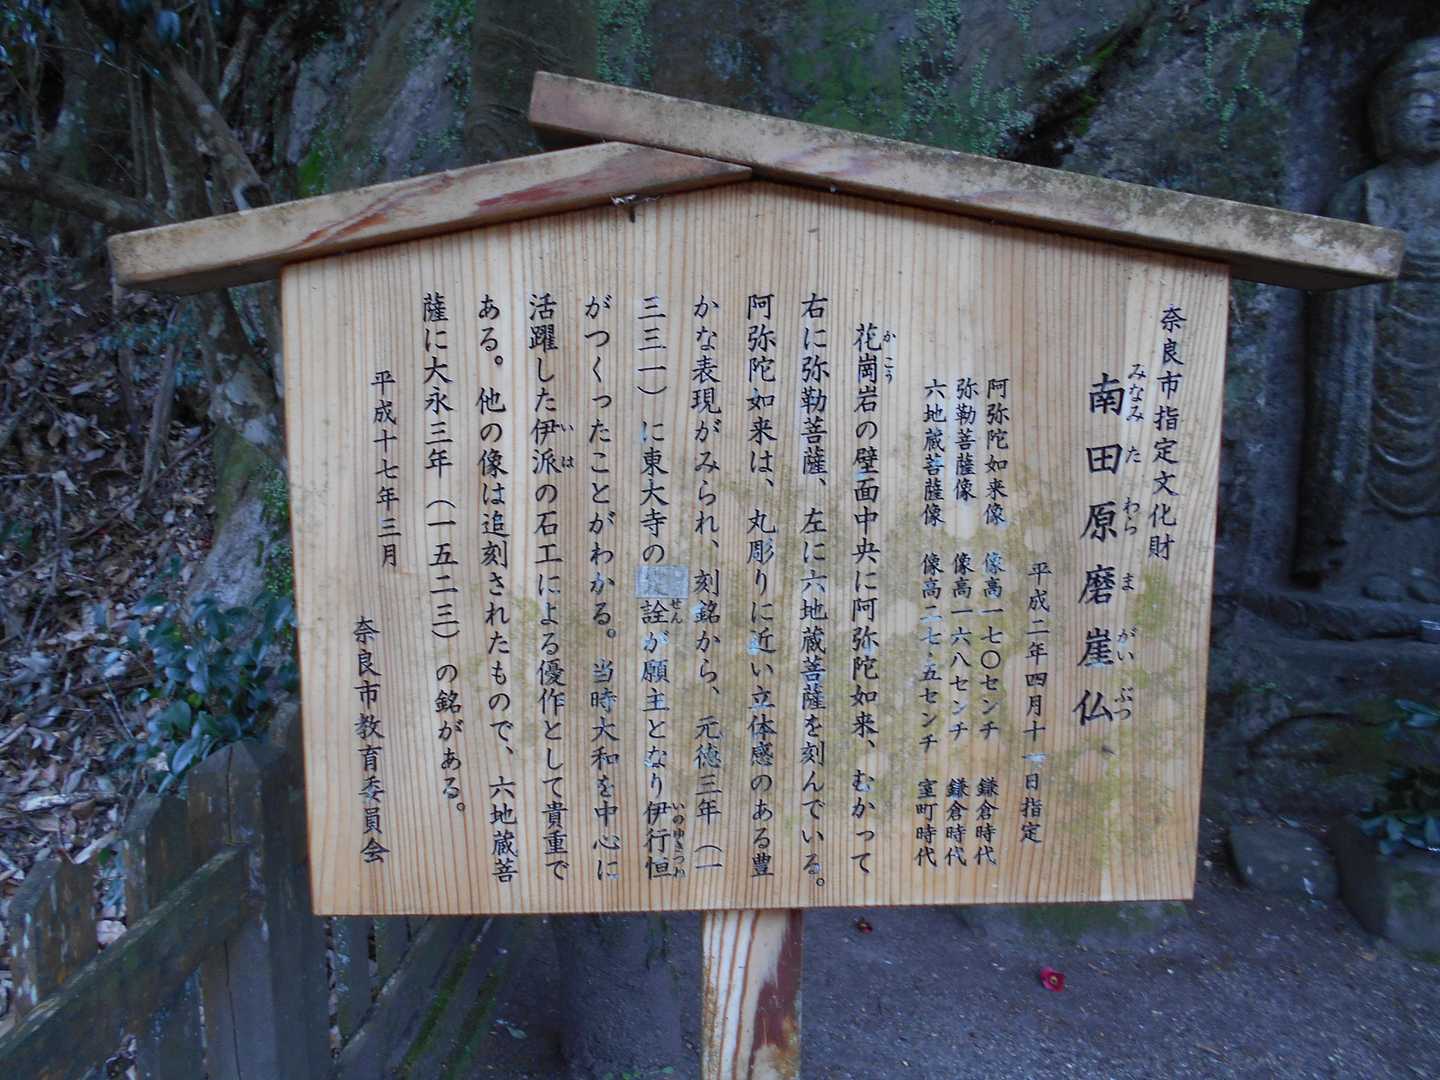 奈良市指定文化財
南田原磨崖仏
みなみ た わら ま がい ぶつ
平成二年四月十一日指定
阿弥陀如来像 像高一七〇センチ 鎌倉時代
弥勒菩薩像 像高一六八センチ 鎌倉時代
六地蔵菩薩像 像高二七・五センチ 室町時代
花崗岩の壁面中央に阿弥陀如来、むかって
か こう
右に弥勒菩薩、左に六地蔵菩薩を刻んでいる。
阿弥陀如来は、丸彫りに近い立体感のある豊
かな表現がみられ、刻銘から、元徳三年（一
三三一）に東大寺の詮が願主となり伊行恒
せん いのゆきつね
がつくったことがわかる。当時大和を中心に
活躍した伊派の石工による優作として貴重で
い は
ある。他の像は追刻されたもので、六地蔵菩
薩に大永三年（一五二三）の銘がある。
平成十七年三月
奈良市教育委員会